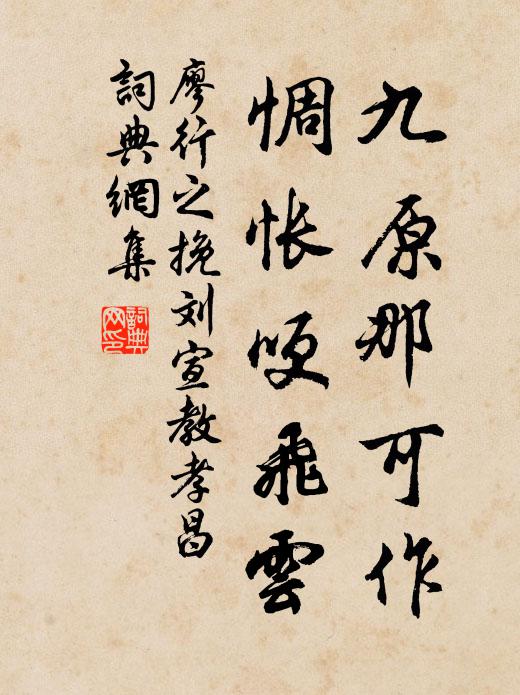 九原那可作
惆怅哽飛雲
廖行之挽刘宣教孝昌
詞典網集
詞典
网印